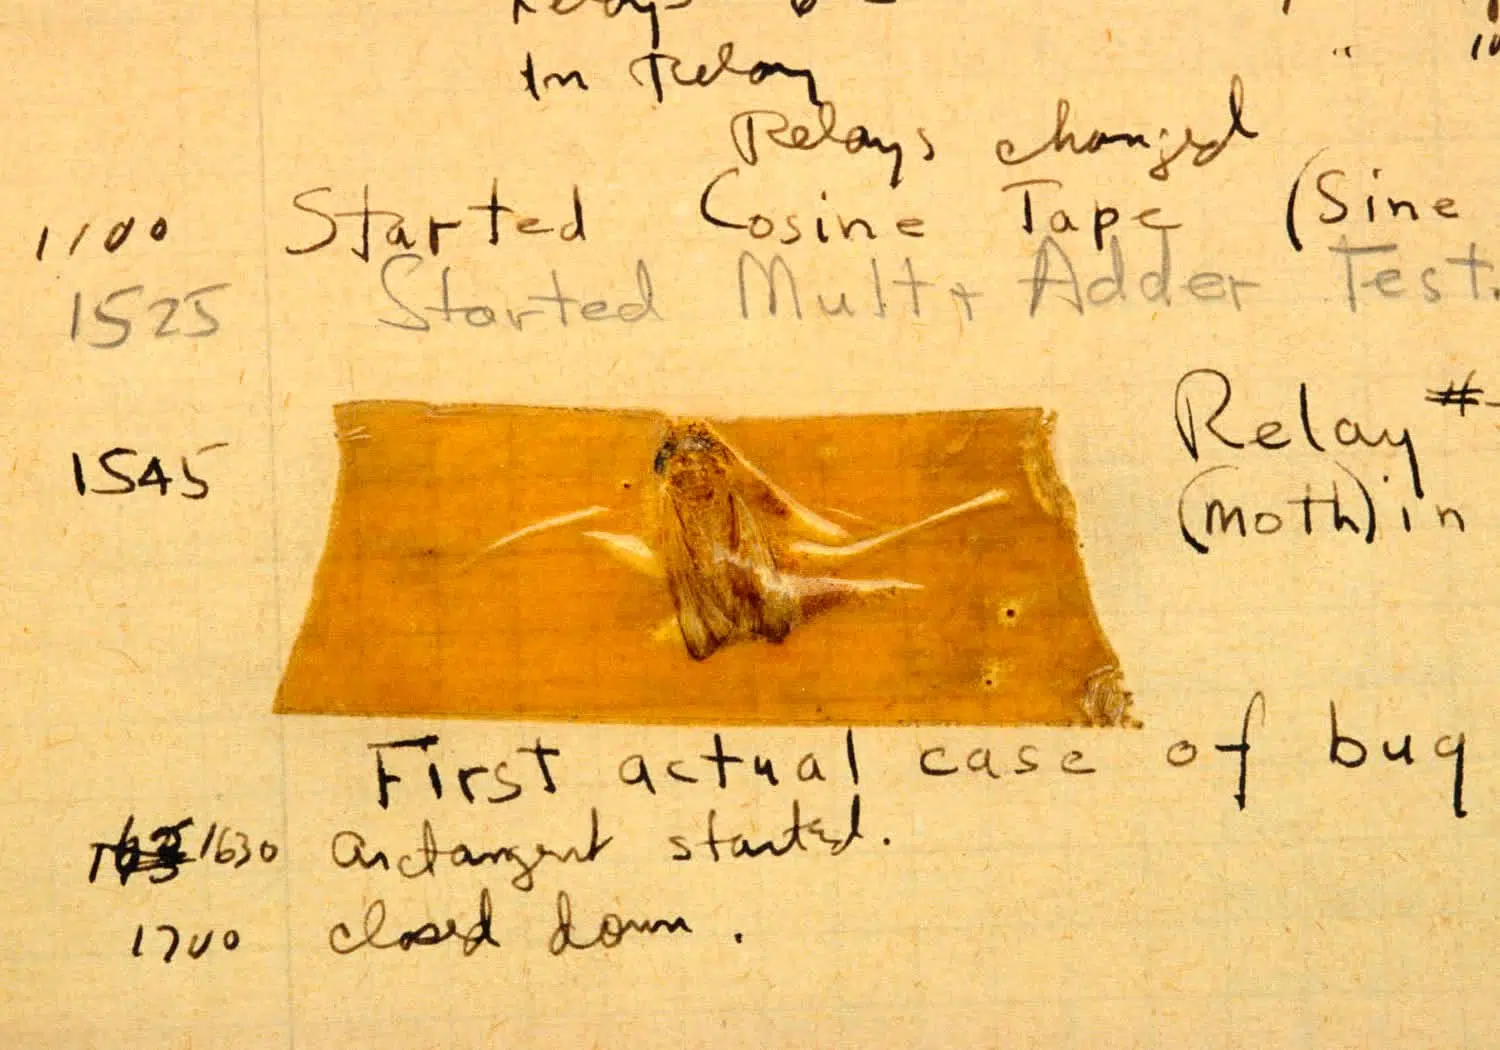 Relays
In Relay "
Relays changed
1100 Started Cosine Tape (Sine
1525 Started Mult + Adder Test.
1545 Relay #
(moth) in
First actual case of bug
1630 arctangent started.
1700 closed down.